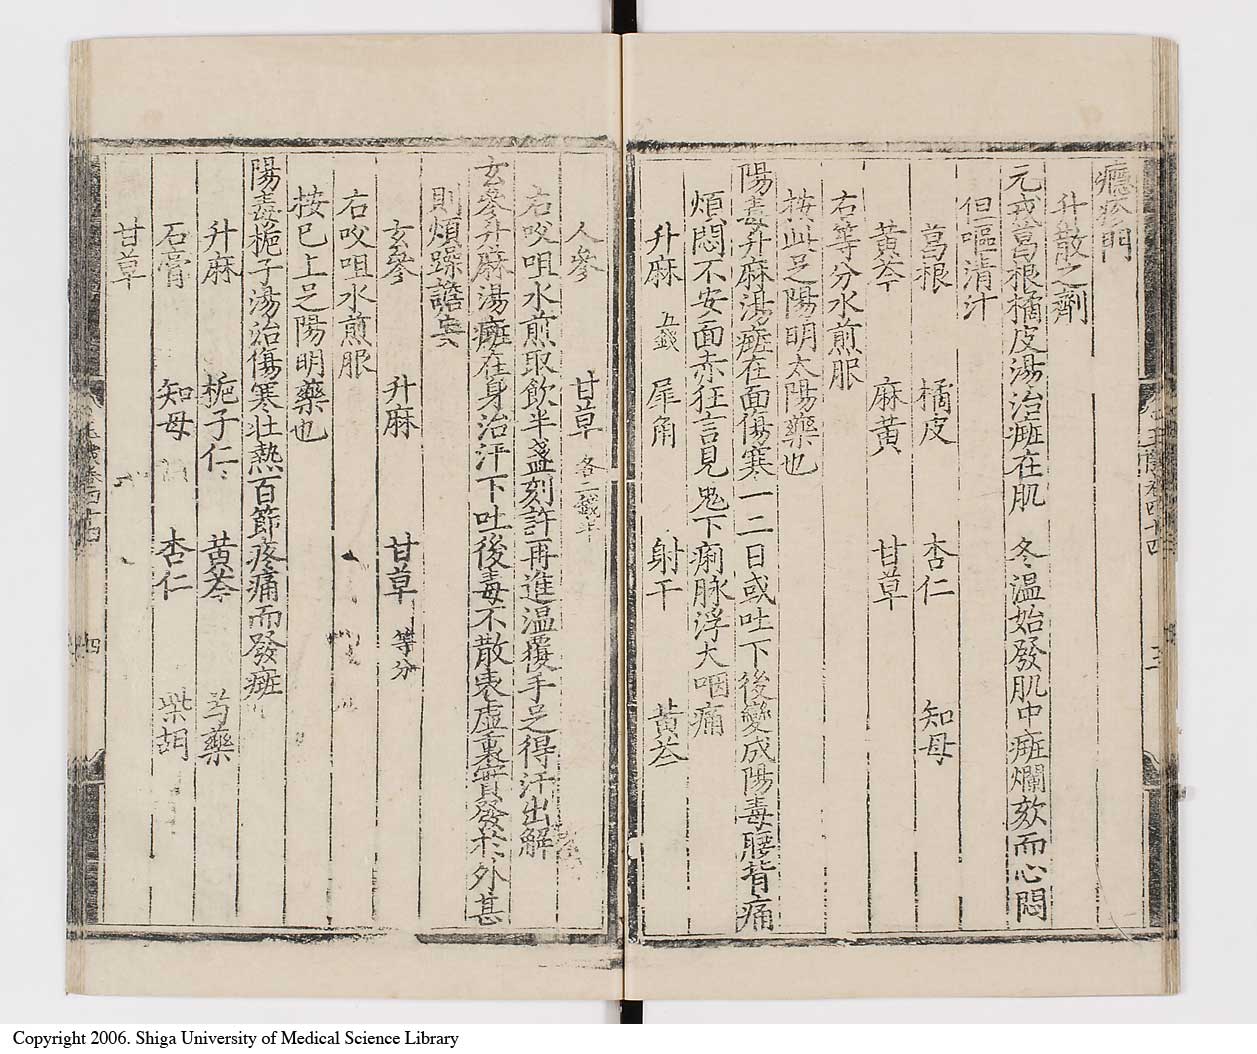 癮疹門
升散之劑
元戎葛根橘皮湯治癍在肌 冬溫始發肌中癍爛欬而心悶
但嘔清汁
葛根 橘皮 杏仁 知母
黃芩 麻黃 甘草
右等分水煎服
按此足陽明太陽藥也
陽毒升麻湯癍在面傷寒一二日或吐下後變成陽毒腰背痛
煩悶不安面赤狂言見鬼下痢脉浮大咽痛
升麻 五錢 犀角 射干 黃芩
人參 甘草 各二錢半
右㕮咀水煎取飲半盞刻許再進溫覆手足得汗出解
玄參升麻湯癍在身治汗下吐後毒不散表虛裏實發於外甚
則煩躁譫妄
玄參 升麻 甘草 等分
右㕮咀水煎服
按已上足陽明藥也
陽毒梔子湯治傷寒壯熱百節疼痛而發癍
升麻 梔子仁 黃芩 芍藥
石膏 知母 杏仁 柴胡
甘草
卷四十四
四
Copyright 2006. Shiga University of Medical Science Library